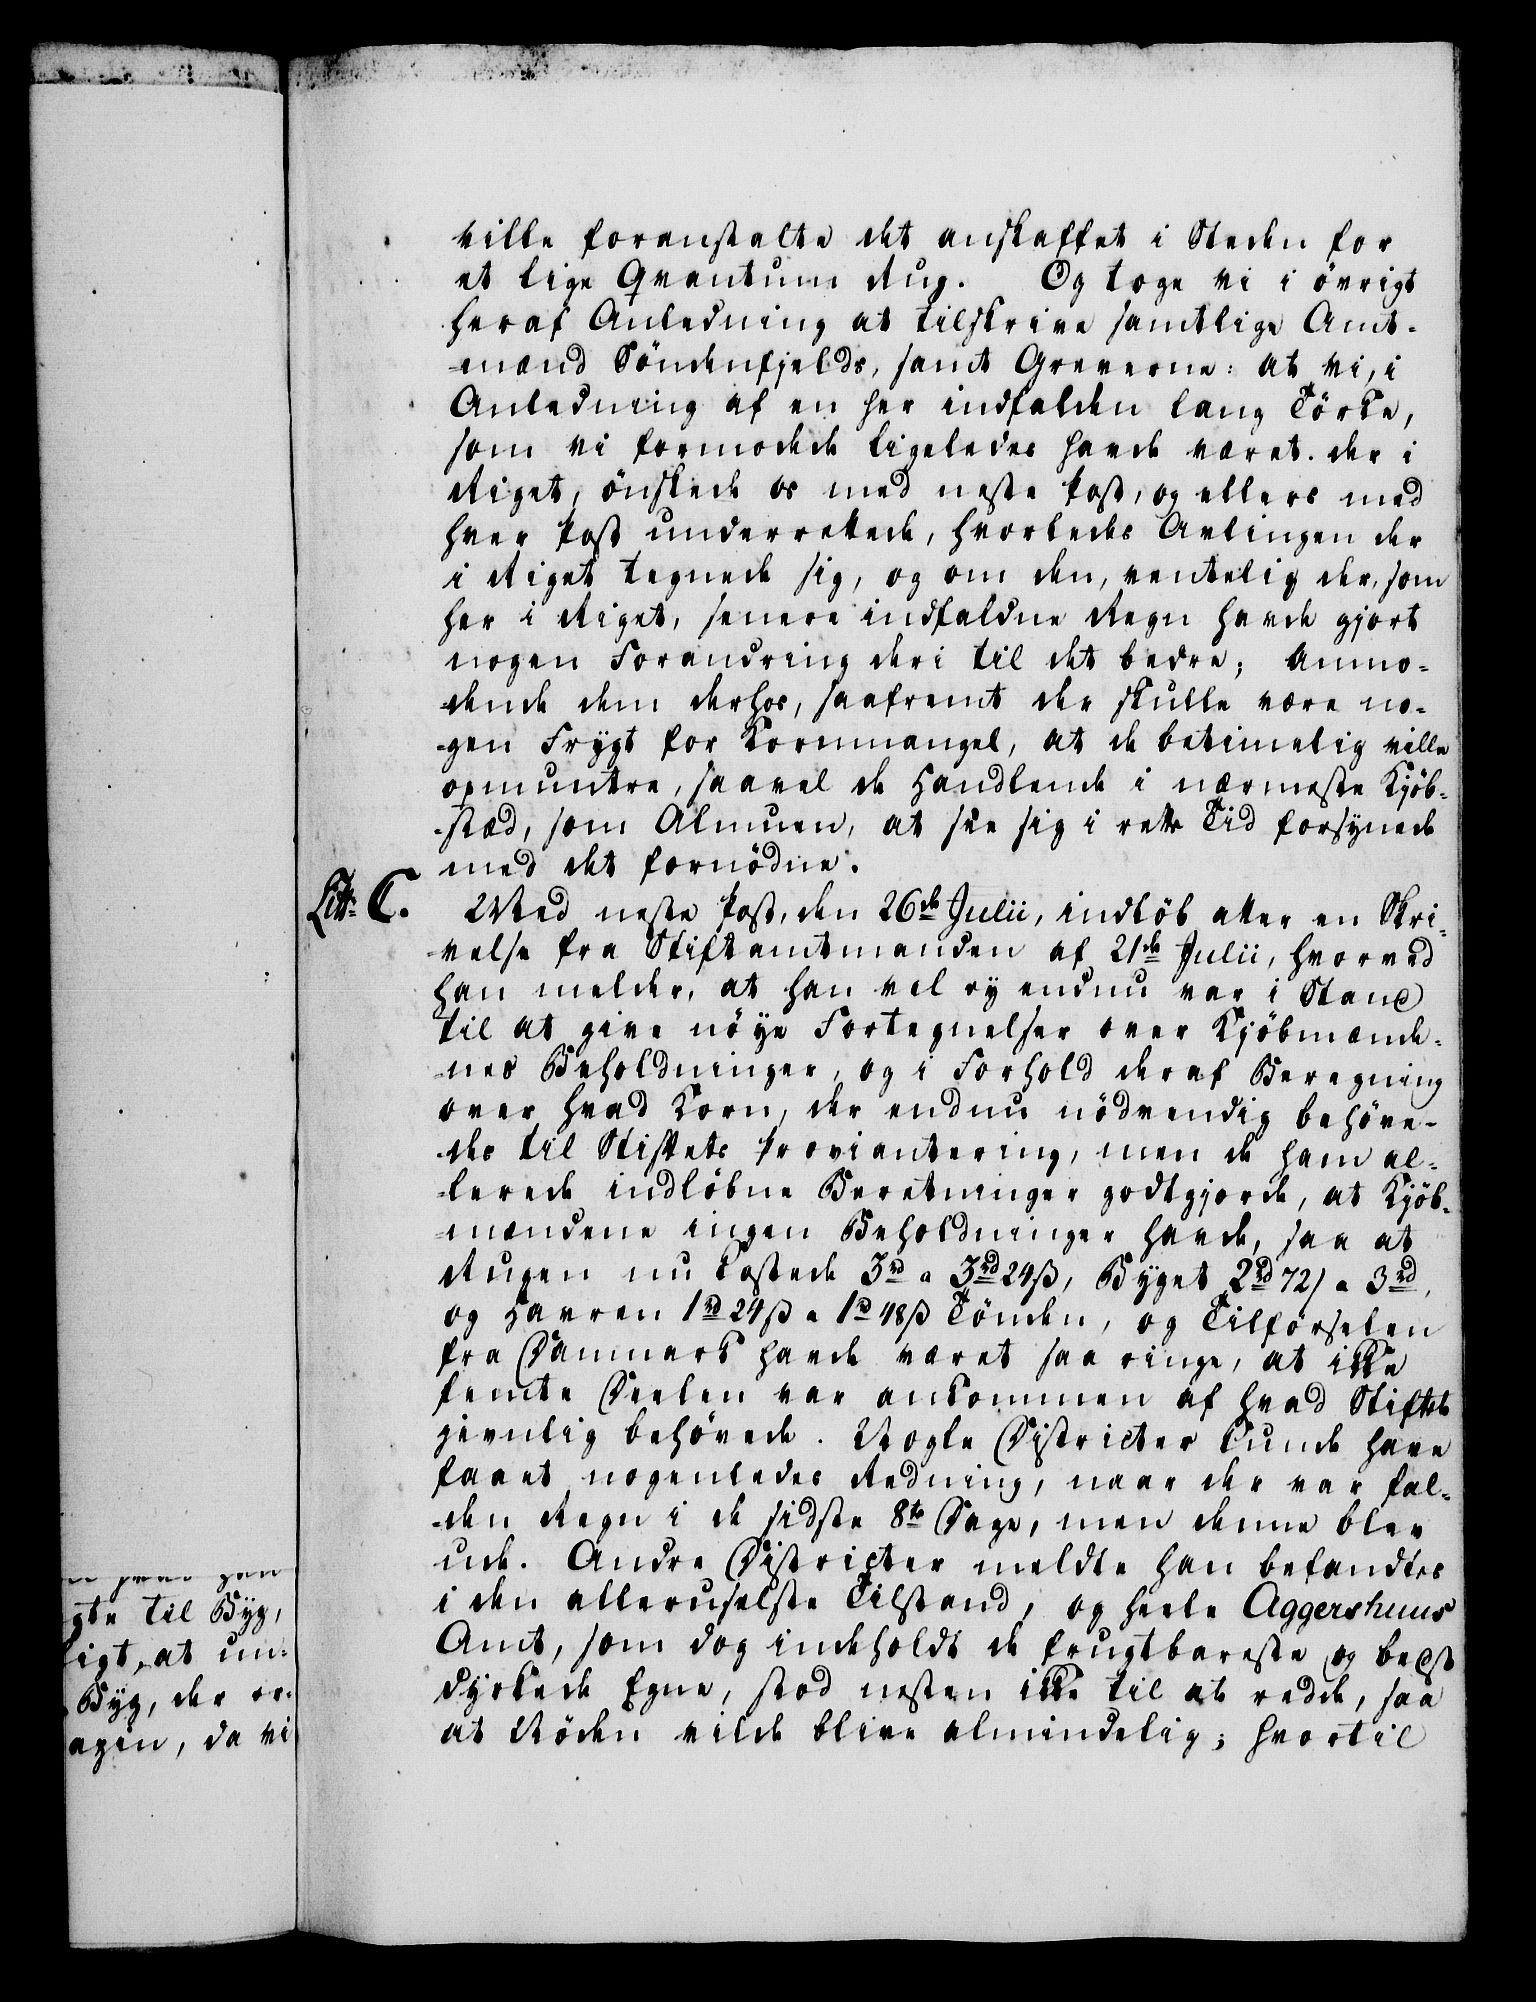 ville foranstalte det anskaffet i Steden for
et lige Qvantum Rug. Og toge vi i övrigt
heraf Anledning at tilskrive samtlige Amt-
mænd Söndenfjelds, samt Greverne: at vi, i
Anledning af en her indfalden lang Törke,
som vi formodede ligeledes havde været der i
Riget, önskede os med neste Post, og ellers med
hver Post underrettede, hvorledes Avlingen der
i Riget tegnede sig, og om den, ventelig der, som
her i Riget, senere indfaldne Regn havde gjort
nogen Forandring deri til det bedre; Anmo-
dende dem derhos, saafremt der skulle være no-
gen Frygt for Kornmangel, at de betimelig ville
opmuntre, saavel de Handlende i nærmeste Kjöb-
stæd, som Almuen, at see sig i rette Tid forsynede
med det fornödne.
Litr. C. Med neste Post, den 26de Julii, indlöb atter en Skri-
velse fra Stiftamtmanden af 21de Julii, hvorved
han melder, at han vel ey endnu var i Stand
til at give nöye Fortegnelser over Kjöbmænde-
nes Beholdninger, og i Forhold deraf Beregning
over hvad Korn, der endnu nödvendig behöve-
des til Stiftets Proviantering, men de ham al-
lerede indlöbne Beretninger godtgjorde, at Kjöb-
mændene ingen Beholdninger havde, saa at
Rugen nu kostede 3rd a 3rd 24ß, Byget 2rd 72ß a 3rd,
og Havren 1rd 24ß a 1rd 48ß Tönden, og Tilförselen
fra Danmark havde været saa ringe, at ikke
femte Deelen var ankommen af hvad Stiftet
jevnlig behövede. Nogle Districter kunde have
faaet nogenledes Redning, naar der var fal-
den Regn i de sidste 8te Dage, men denne blev
ude. Andre Districter meldte han befandtes
i den alleruselste Tilstand, og heele Aggershuus
Amt, som dog indeholdt de frugtbareste og beedst
dyrkede Egne, stod nesten ikke til at redde, saa
at Nöden vilde blive almindelig; hvortil
gte til Byg,
ligt, at un-
Byg, der or-
agen, da vi